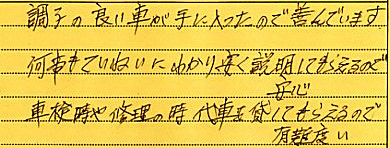 調子の良い車が手に入ったので喜んでいます
何事もていねいにわかり安く説明してもらえるので
安心
車検時や修理の時代車を貸してもらえるので
有難度い